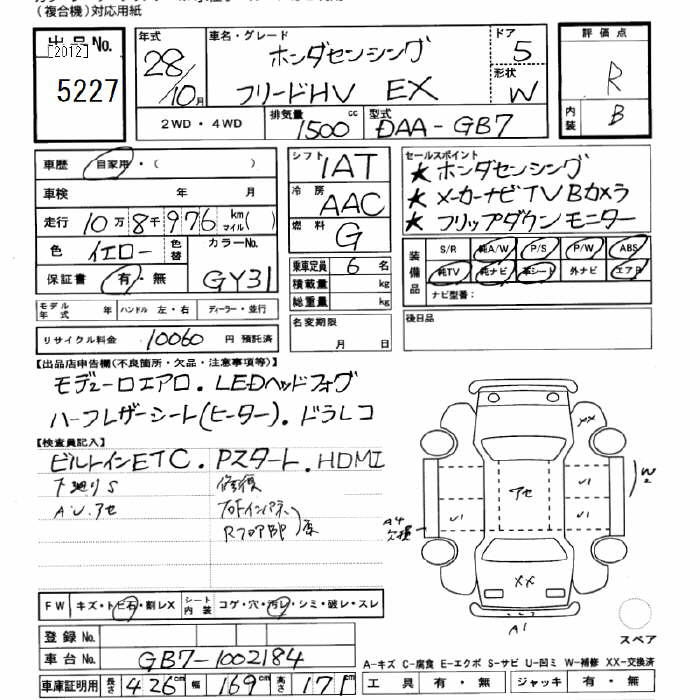 （複合機）対応用紙
出品No.
[2012]
5227
年式
28/10月
車名・グレード
ホンダセンシング
フリードHV EX
ドア
5
形状
W
評価点
R
内装
B
2WD・4WD
排気量
1500cc
型式
DAA-GB7
車歴
自家用・（ ）
車検 年 月
走行 10万8千976 km マイル( )
色 イエロー 色替
カラーNo.
GY31
保証書 有・無
モデル年式 年 ハンドル 左・右 ディーラー・並行
リサイクル料金 10060 円 預託済
シフト
1AT
冷房
AAC
燃料
G
乗車定員 6 名
積載量 kg
総重量 kg
名変期限
月 日
セールスポイント
★ホンダセンシング
★メーカーナビTV Bカメラ
★フリップダウンモニター
装備品
S/R 純A/W P/S P/W ABS
純TV 純ナビ 革シート 外ナビ エアB
ナビ型番：
後日品
【出品店申告欄(不良箇所・欠品・注意事項等)】
モデューロエアロ．LEDヘッドフォグ
ハーフレザーシート(ヒーター)．ドラレコ
【検査員記入】
ビルトインETC．Pスタート．HDMI
下廻りS
修復
A.U.アセ
Rフロア部
FW キズ・トビ石・割レX
シート内装 コゲ・穴・汚レ・シミ・破レ・スレ
登録No.
車台No. GB7-1002184
車庫証明用 長さ 426cm 幅 169cm 高さ 171cm
XX
W2
アセ
U1
U1
U1
A4
XX
A1
スペア
A-キズ C-腐食 E-エクボ S-サビ U-凹ミ W-補修 XX-交換済
工具 有・無 ジャッキ 有・無